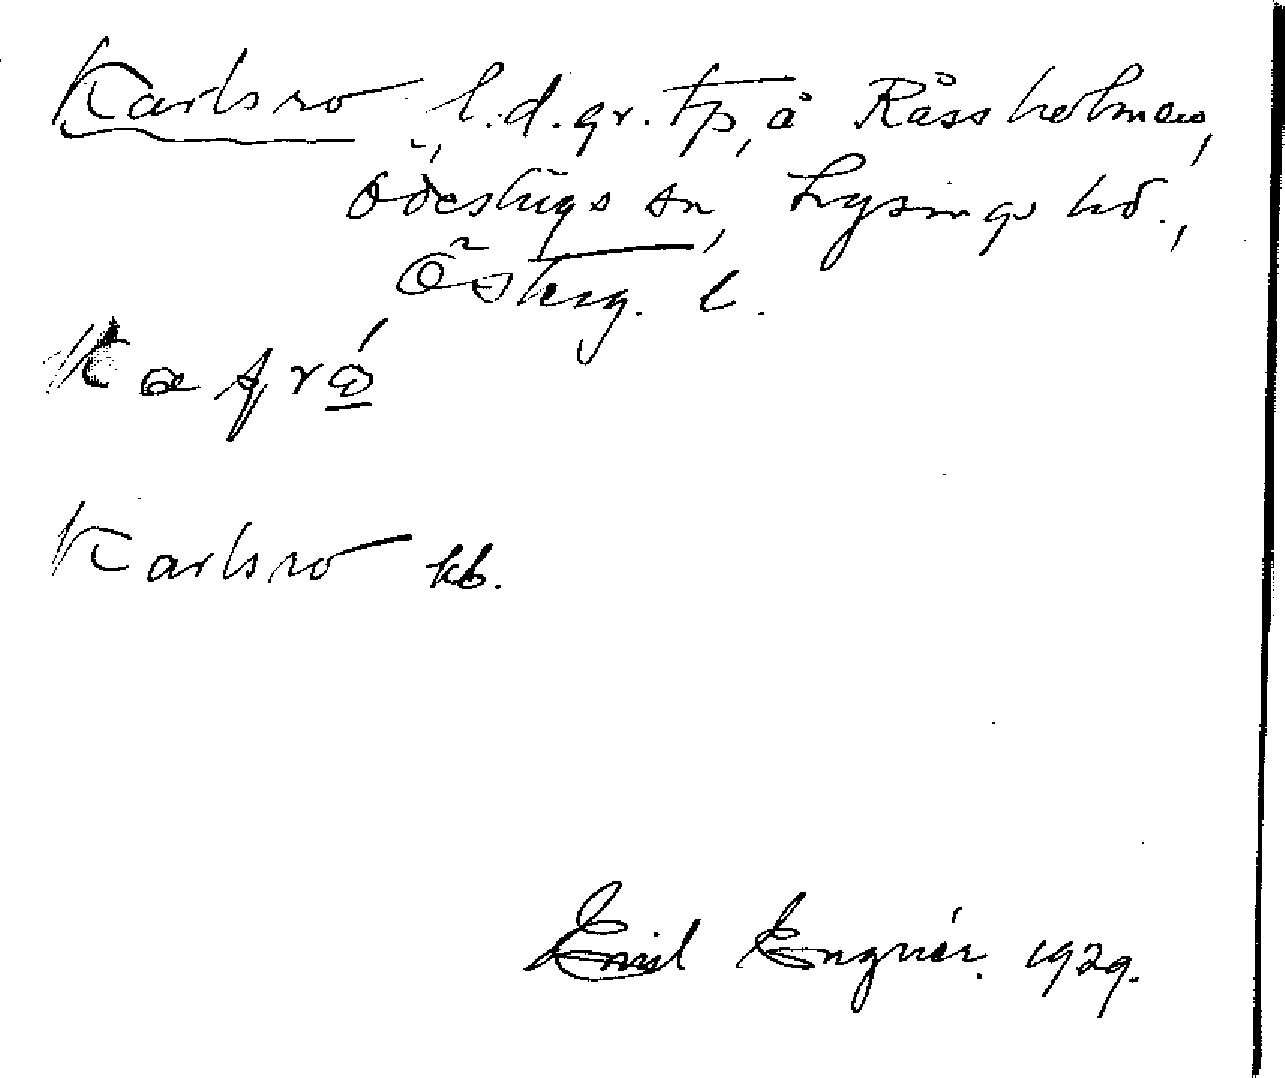 Karlsro, l.d. gr. tp, å Råssholmen,
Ödeshögs sn, Lysings hd.,
Österg. l.
Karlsro kb.
Emil Engnér. 1929.